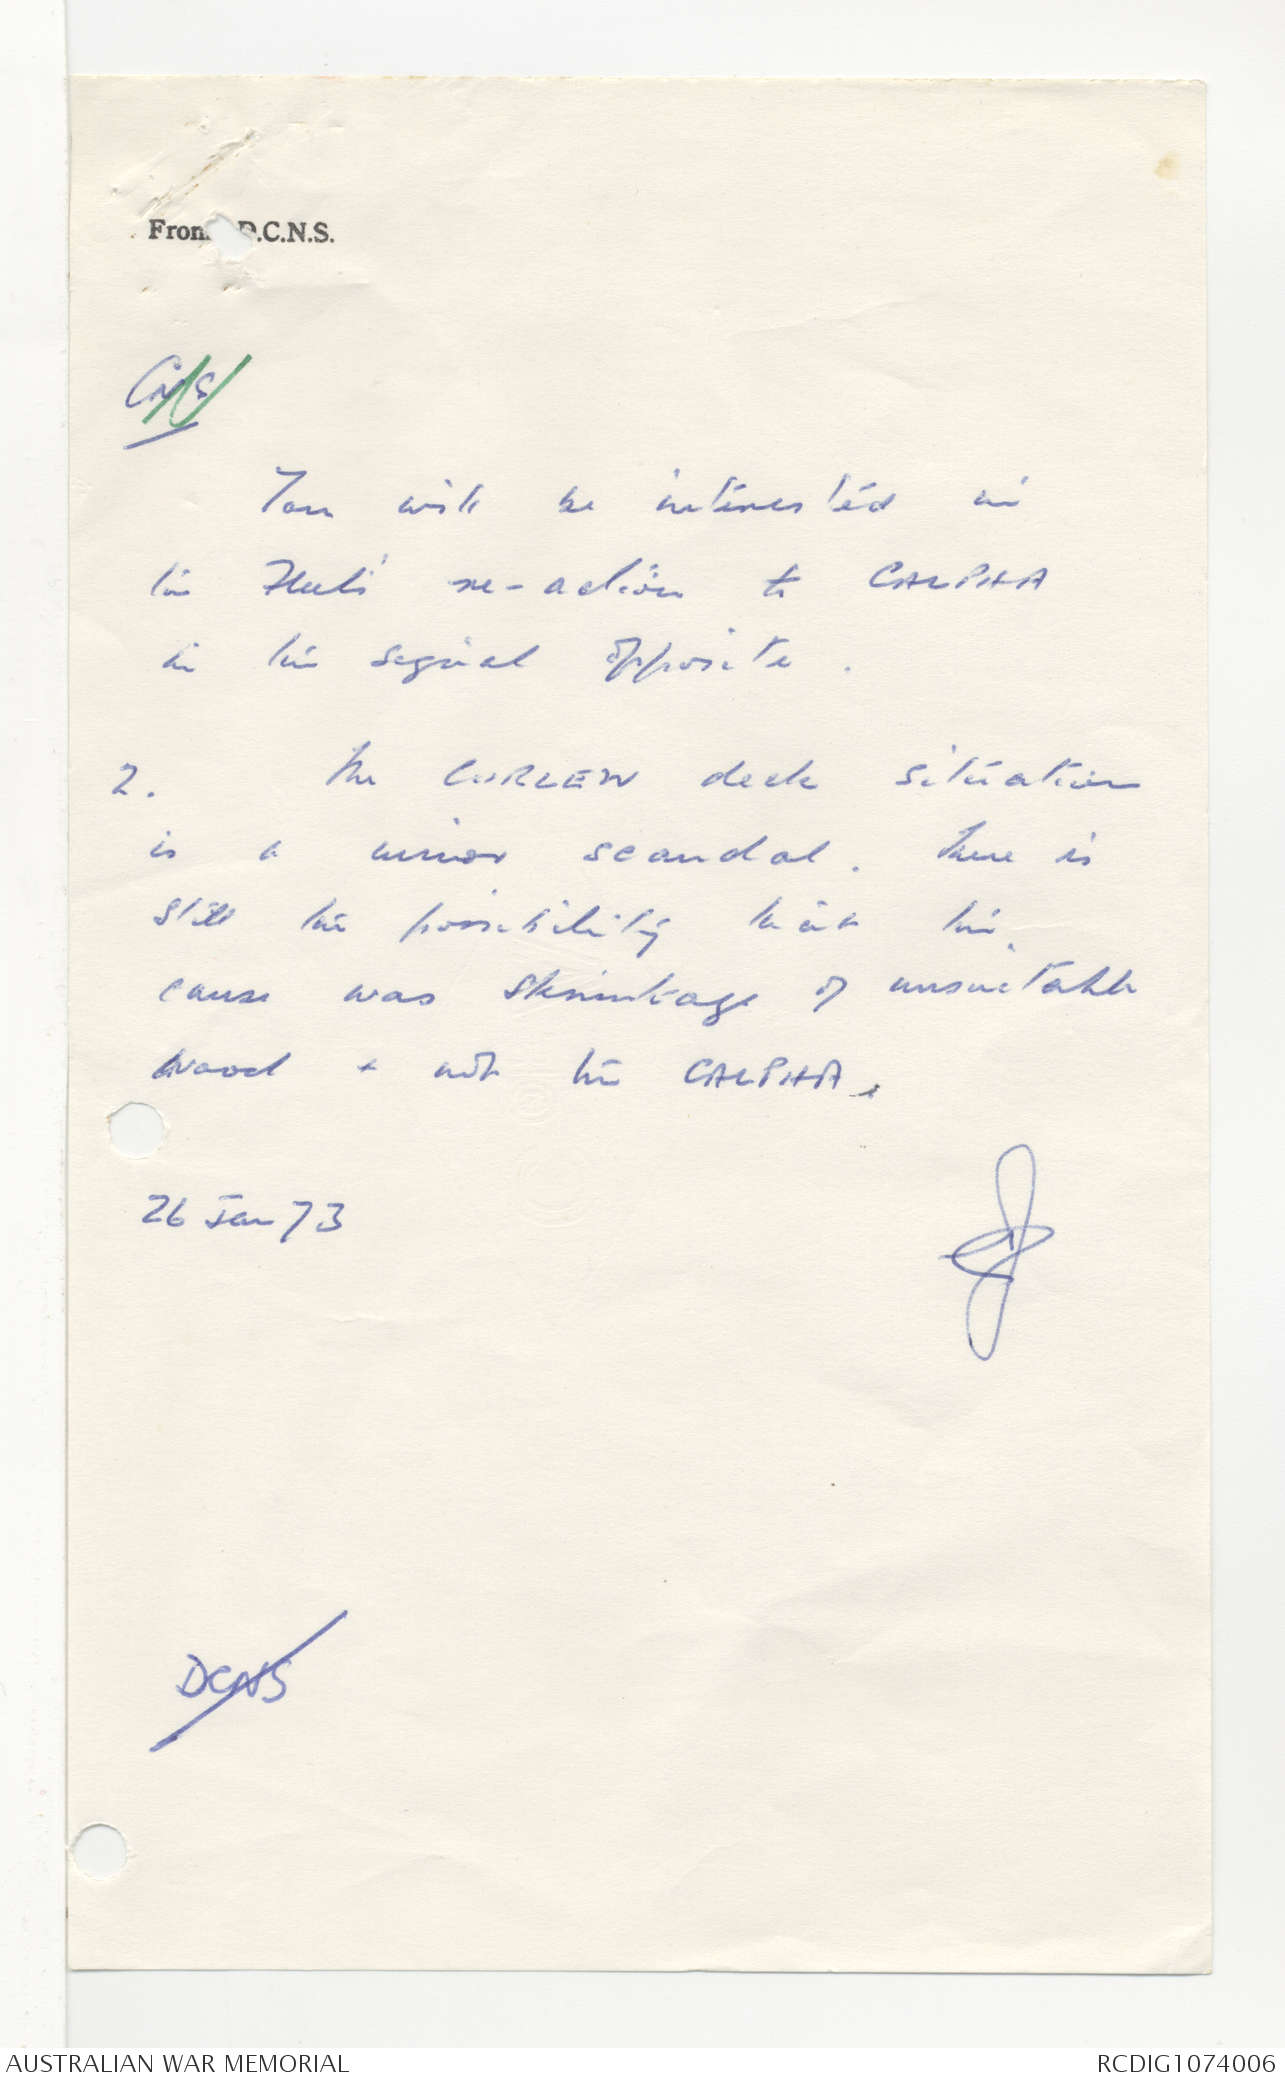 From: D.C.N.S.
CNS
You will be interested in
the Fleet's re-action to CALPHA
in the signal opposite.
2. The CURLEW deck situation
is a minor scandal. There is
still the possibility that the
cause was shrinkage of unsuitable
wood & not the CALPHA.
26 Jan 73
DCNS
AUSTRALIAN WAR MEMORIAL
RCDIG1074006